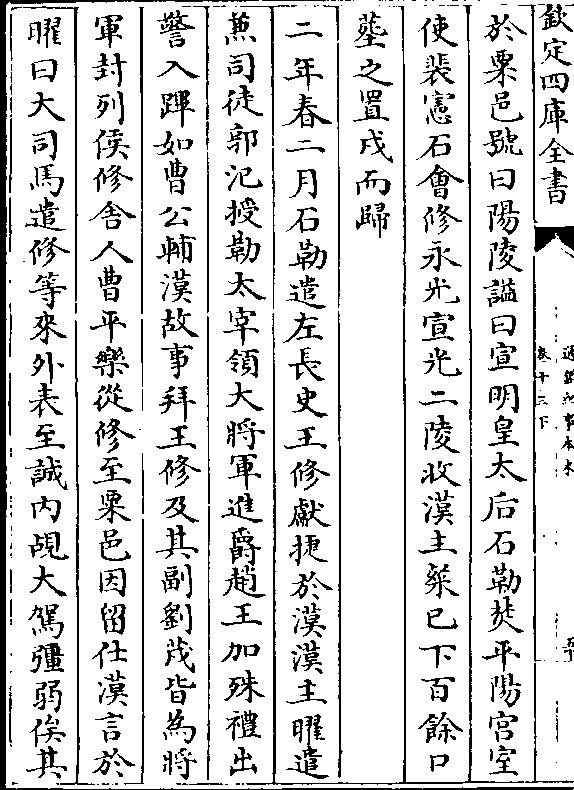 欽定四庫全書
通鑑紀事本末
卷十三下
於粟邑號曰陽陵諡曰宣明皇太后石勒焚平陽宮室
使裴憲石會修永光宣光二陵收漢主粲已下百餘口
塟之置戍而歸
二年春二月石勒遣左長史王修獻捷於漢漢主曜遣
兼司徒郭汜授勒太宰領大將軍進爵趙王加殊禮出
警入蹕如曹公輔漢故事拜王修及其副劉茂皆為將
軍封列侯修舍人曹平樂從修至粟邑因留仕漢言於
曜曰大司馬遣修等來外表至誠內覘大駕彊弱俟其